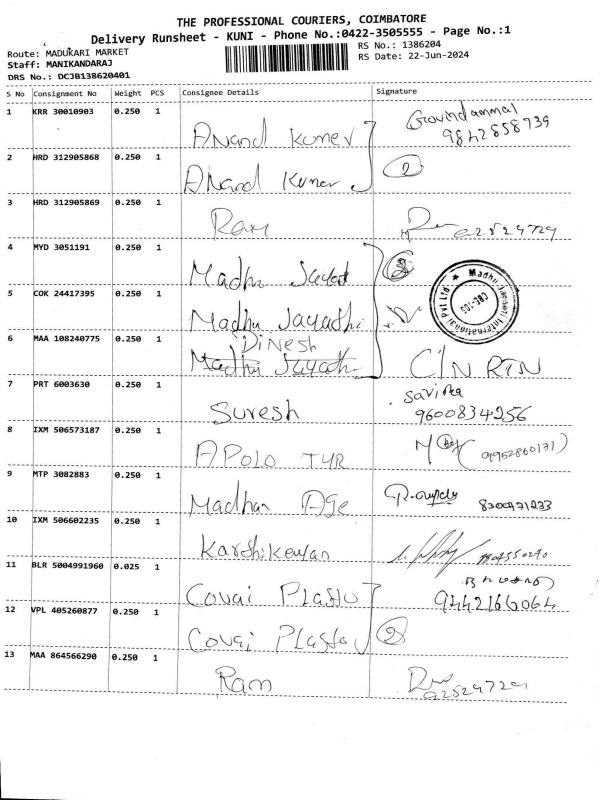 THE PROFESSIONAL COURIERS, COIMBATORE
Delivery Runsheet - KUNI - Phone No.:0422-3505555 - Page No.:1
Route: MADUKARI MARKET
RS No.: 1386204
Staff: MANIKANDARAJ
RS Date: 22-Jun-2024
DRS No.: DCJB138620401
S No Consignment No Weight PCS Consignee Details Signature
1 KRR 30010903 0.250 1 Anand Kumar Govindammal
9842858739
2 HRD 312905868 0.250 1 Anand Kumar 2
3 HRD 312905869 0.250 1 Ram
4 MYD 3051191 0.250 1 Madhu Jayanti
5 COK 24417395 0.250 1 Madhu Jayanthi
Madhu Jayanti International Pvt Ltd.
6 MAA 108240775 0.250 1 Dinesh C/N RTN
7 PRT 6003630 0.250 1 Suresh Savitha
9600834256
8 IXM 506573187 0.250 1 APOLO TYR
9 MTP 3082883 0.250 1 Madhan Age
10 IXM 506602235 0.250 1 Karthikeyan
11 BLR 5004991960 0.025 1 Covai Plasto
9442166064
12 VPL 405260877 0.250 1 Covai Plasto 2
13 MAA 864566290 0.250 1 Ram